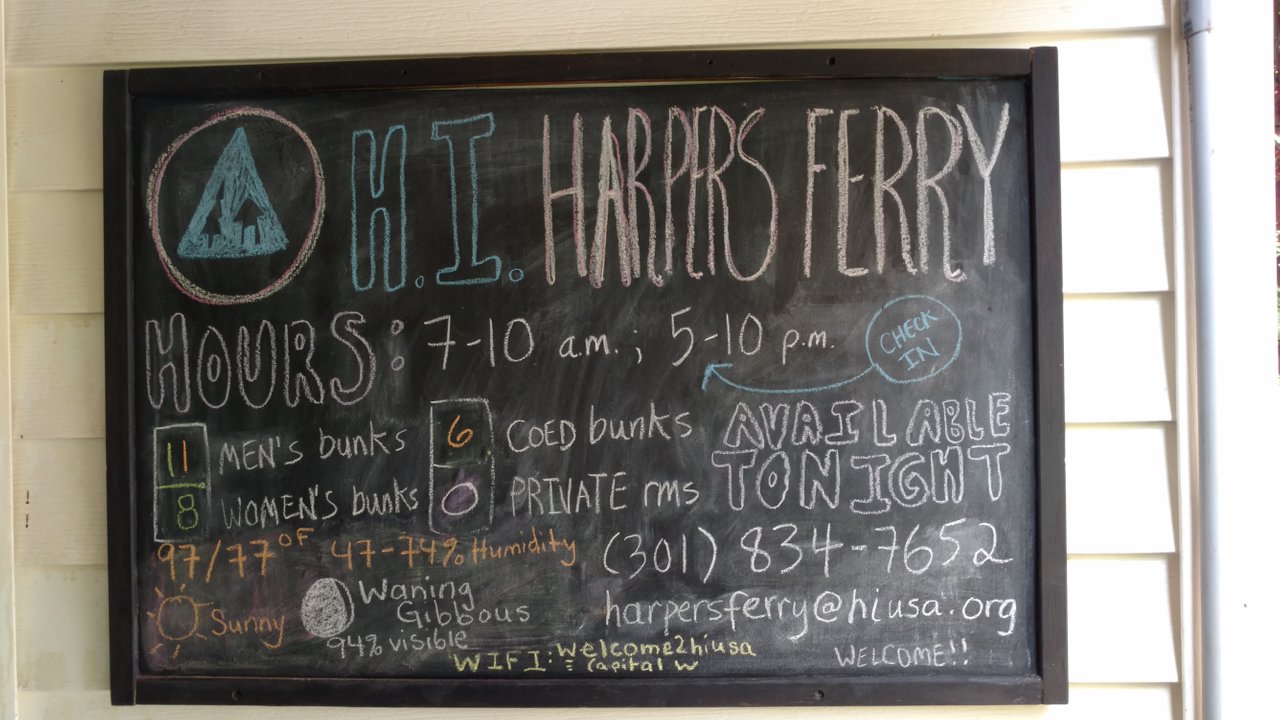 H.I. HARPERS FERRY
HOURS: 7-10 a.m.; 5-10 p.m. CHECK IN
11 MEN'S bunks 6 COED bunks AVAILABLE
8 WOMEN'S bunks 0 PRIVATE rms TONIGHT
97/77°F 47-74% Humidity (301) 834-7652
Sunny Waning Gibbous harpersferry@hiusa.org
94% visible
WIFI: welcome2hiusa WELCOME!!
= capital w